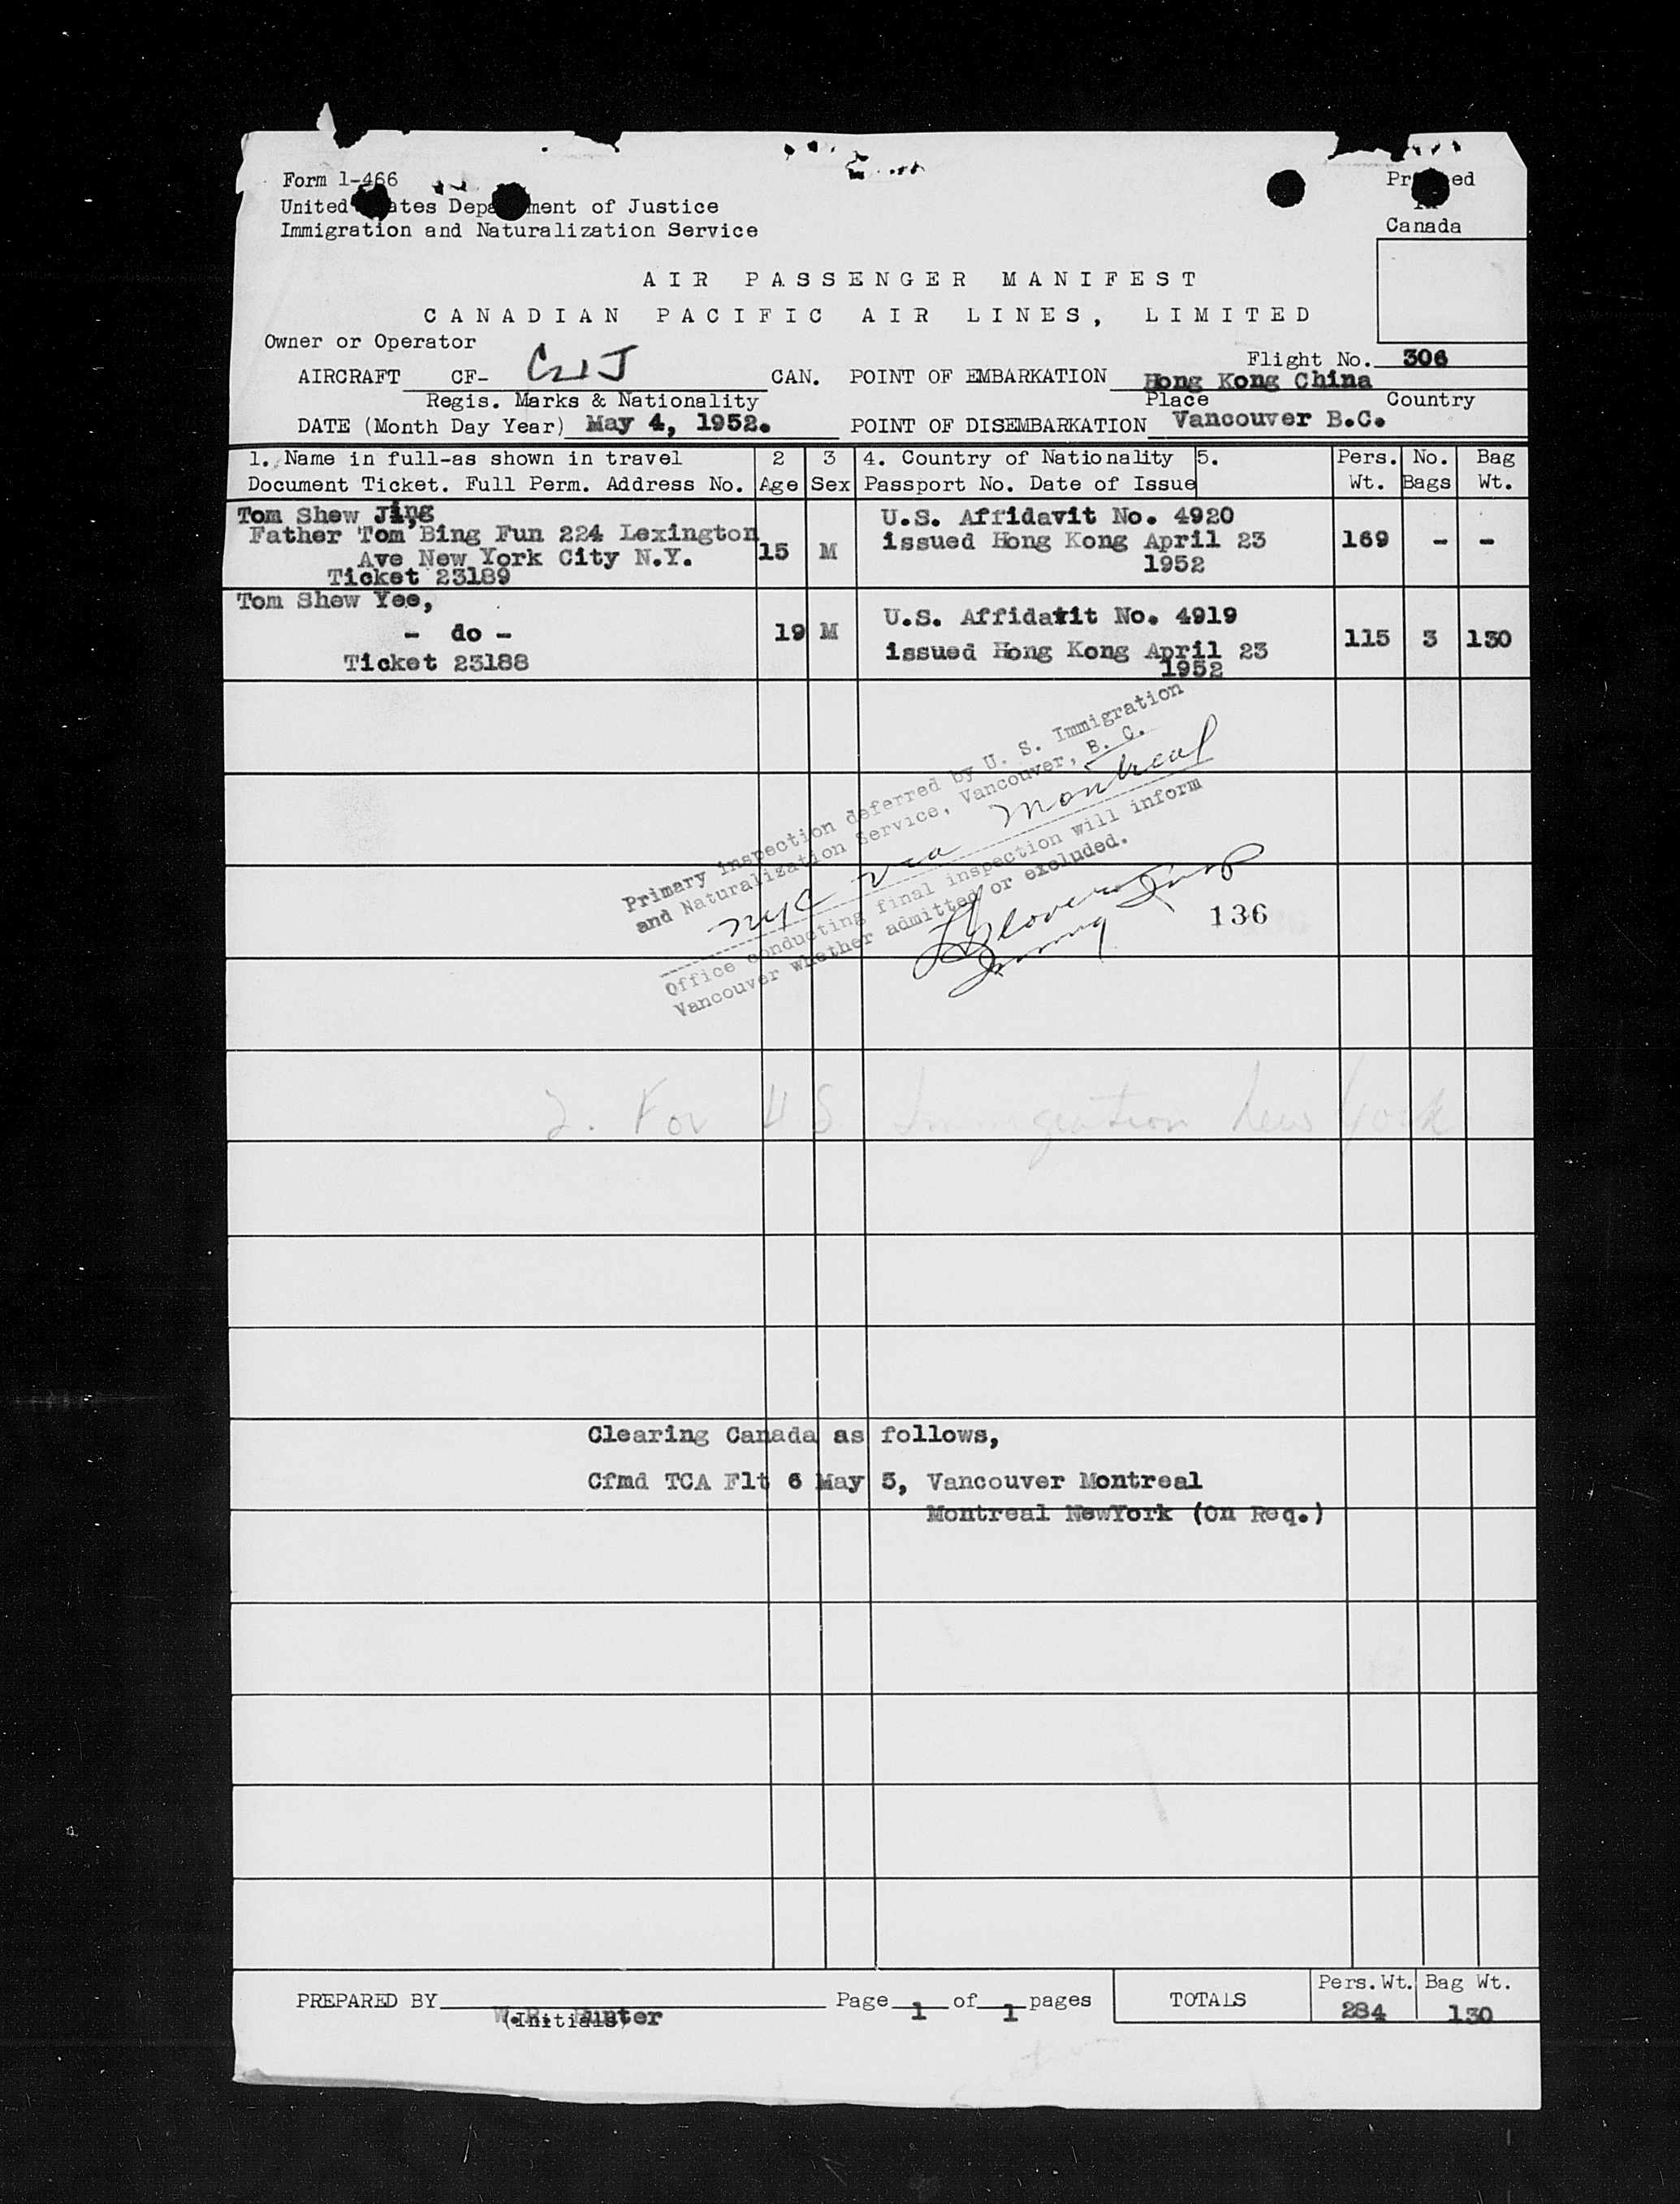 Form 1-466
United States Department of Justice
Immigration and Naturalization Service
Printed
in
Canada
AIR PASSENGER MANIFEST
CANADIAN PACIFIC AIR LINES, LIMITED
Owner or Operator
Flight No. 306
AIRCRAFT CF- CUJ CAN. POINT OF EMBARKATION Hong Kong China
Regis. Marks & Nationality Place Country
DATE (Month Day Year) May 4, 1952. POINT OF DISEMBARKATION Vancouver B.C.
1. Name in full-as shown in travel 2 3 4. Country of Nationality 5. Pers. No. Bag
Document Ticket. Full Perm. Address No. Age Sex Passport No. Date of Issue Wt. Bags Wt.
Tom Shew Jing U.S. Affidavit No. 4920
Father Tom Bing Fun 224 Lexington 15 M issued Hong Kong April 23 169 - -
Ave New York City N.Y. 1952
Ticket 23189
Tom Shew Yee, U.S. Affidavit No. 4919
- do - 19 M 115 3 130
Ticket 23188 issued Hong Kong April 23
1952
Primary inspection deferred by U. S. Immigration
and Naturalization Service, Vancouver, B. C.
NYC via Montreal
Office conducting final inspection will inform
Vancouver whether admitted or excluded.
136
2. For U S Immigration New York
Clearing Canada as follows,
Cfmd TCA Flt 6 May 5, Vancouver Montreal
Montreal NewYork (On Req.)
Pers.Wt. Bag Wt.
PREPARED BY W.R. Hunter Page 1 of 1 pages TOTALS 284 130
(Initials)